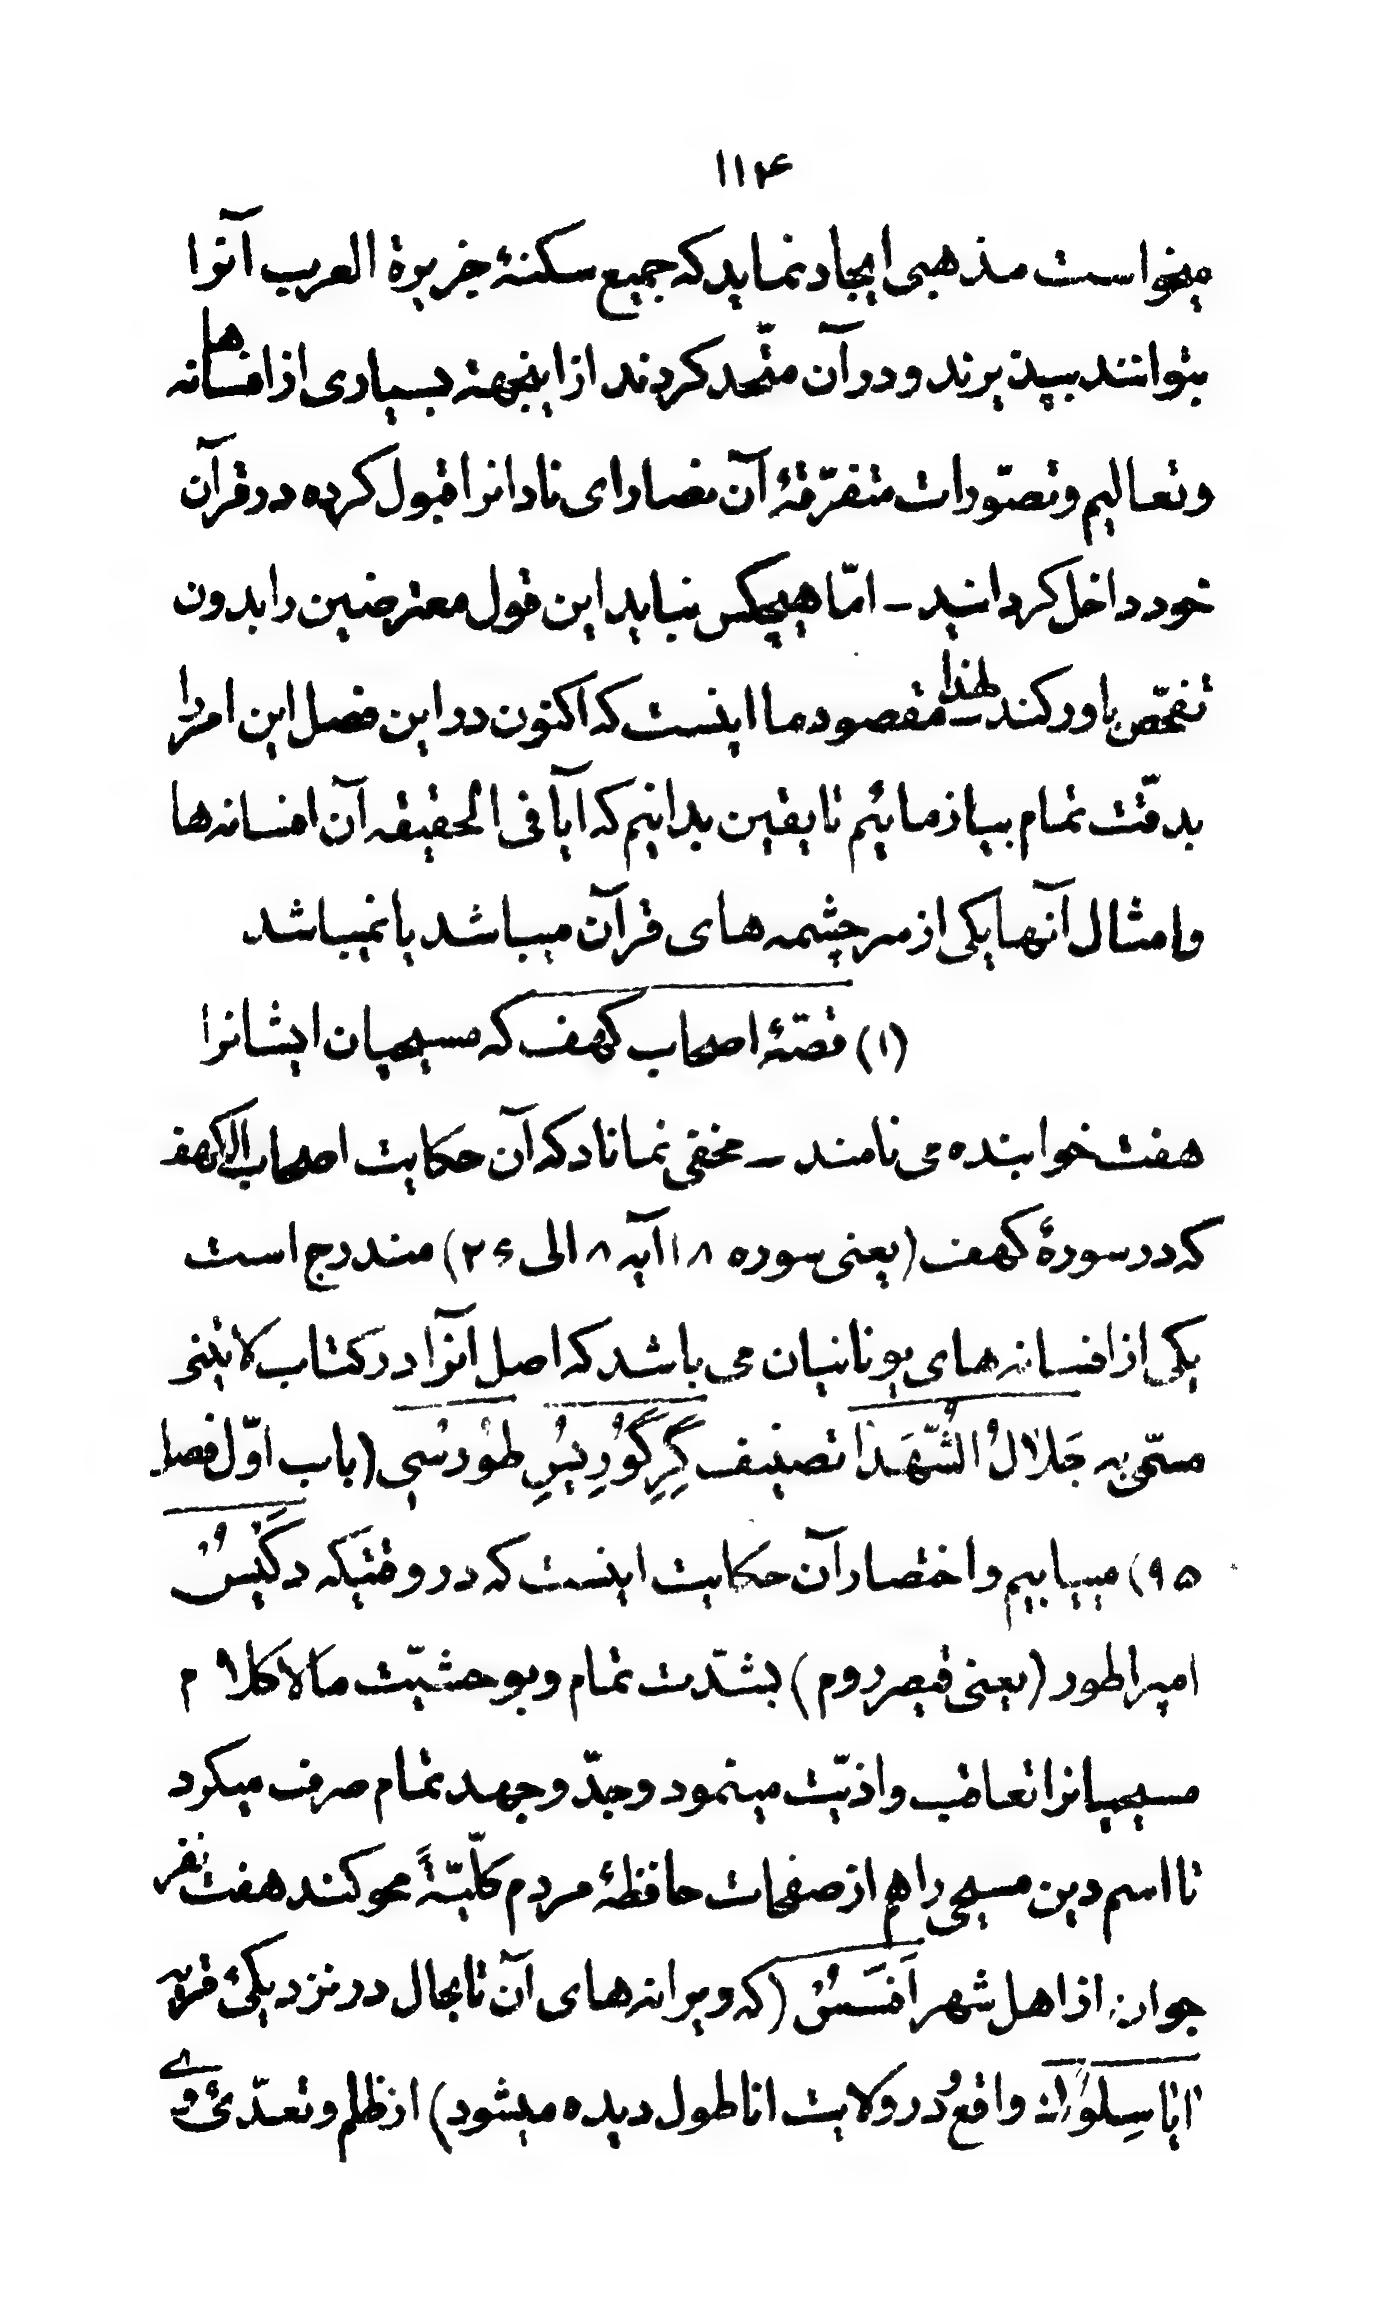 ۱۱۴
میخواست مذهبی ایجاد نماید که جمیع سکنهٔ جزیرة العرب آنرا
بتوانند بپذیرند و در آن متّحد کردند از اینجهته بسیاری از افسانه ها
و تعالیم و تصوّرات متفرّقهٔ آن نصارای نادانرا قبول کرده در قرآن
خود داخل کردانید – امّا هیچکس نباید این قول معترضین را بدون
تفحّص باور کند لهذا مقصود ما اینست که اکنون در این فصل این امر را
بدقّت تمام بیازمائیم تا یقین بدانیم که آیا فی الحقیقه آن افسانه ها
و امثال آنها یکی از سرچشمه های قرآن میباشد یا نمیباشد
(۱) قصّهٔ اصحاب کهف که مسیحیان ایشانرا
هفت خوابنده می نامند – مخفی نماناد که آن حکایت اصحاب الکهف
که در سورهٔ کهف (یعنی سوره ۱۸ آیه ۸ الی ۲۶) مندرج است
یکی از افسانه های یونانیان می باشد که اصل آنرا در کتاب لاتینی
مسمّی به جَلالُ الشُّهَدا تصنیف گِرِگوُرِیُسِ طوُرسُی (باب اوّل فصل
۹۵) مییابیم و اختصار آن حکایت اینست که در وقتیکه دکیُسُ
امپراطور (یعنی قیصر روم) بشدّت تمام و بوحشیّت مالاکلام
مسیحیانرا تعاقب و اذیّت مینمود وجدّ و جهد تمام صرف میکرد
تا اسم دین مسیحی را هم از صفحات حافظهٔ مردم کلّیّةً محو کند هفت نفر
جوان از اهل شهر اَفَسَسُ (که ویرانه های آن تا بحال در نزدیکئ قریه
ایاسِلوُن واقع در ولایت اناطول دیده میشود) از ظلم و تعدّئ وی